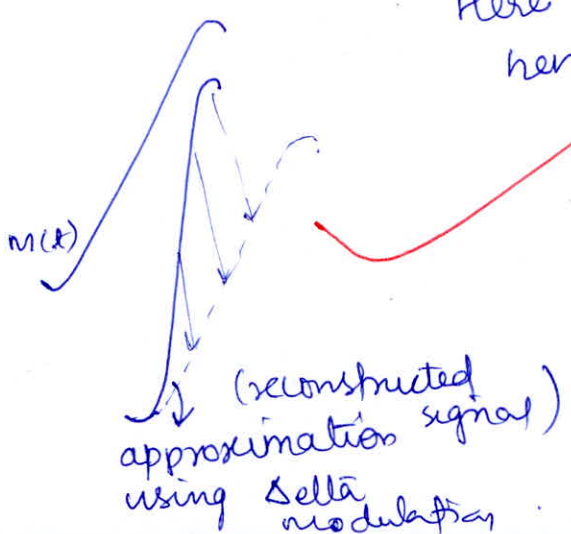 Here
her
m(t)
(reconstructed
approximation signal)
using Delta
modulation